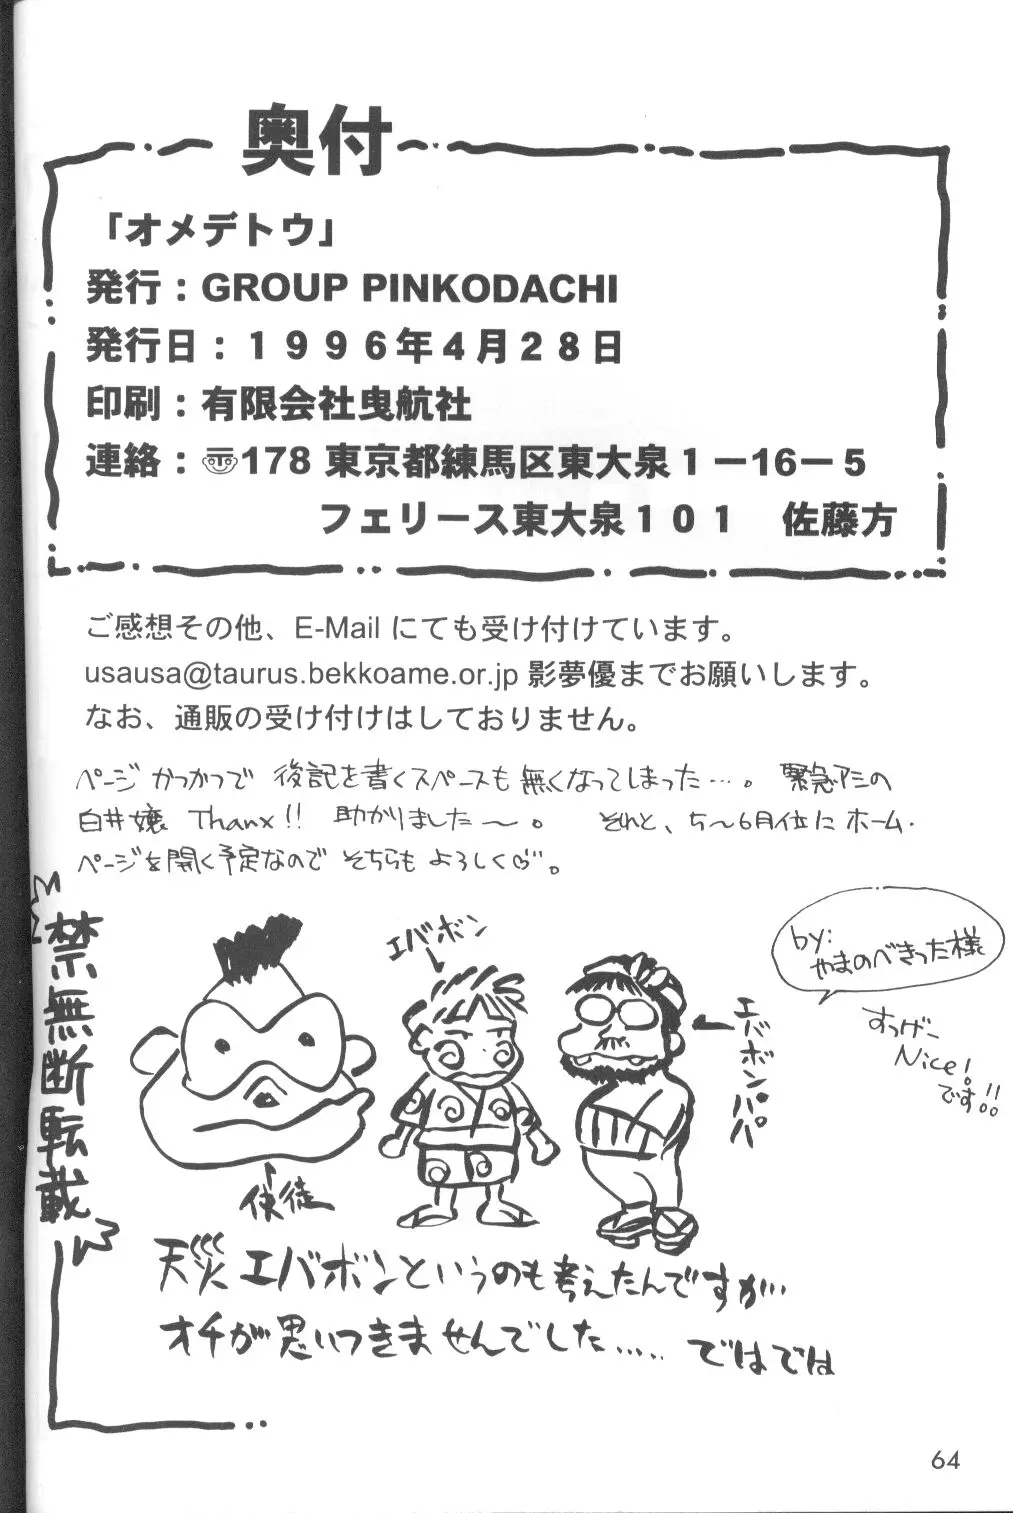 奥付
「オメデトウ」
発行：GROUP PINKODACHI
発行日：１９９６年４月２８日
印刷：有限会社曳航社
連絡：〠178 東京都練馬区東大泉１－16－５
フェリース東大泉１０１　佐藤方
ご感想その他、E-Mail にても受け付けています。
usausa@taurus.bekkoame.or.jp 影夢優までお願いします。
なお、通販の受け付けはしておりません。
ページかつかつで 後記を書くスペースも無くなってしまった…。 緊急アシの
白井嬢 Thanx!! 助かりました〜。 それと、5〜6月位にホーム・
ページを開く予定なので そちらもよろしく。
禁無断転載
エバボン
エバボンパパ
by:
やまのべきった様
すっげー
Nice!
です!!
使徒
天災エバボンというのも考えたんですが…
オチが思いつきませんでした..... ではでは
64